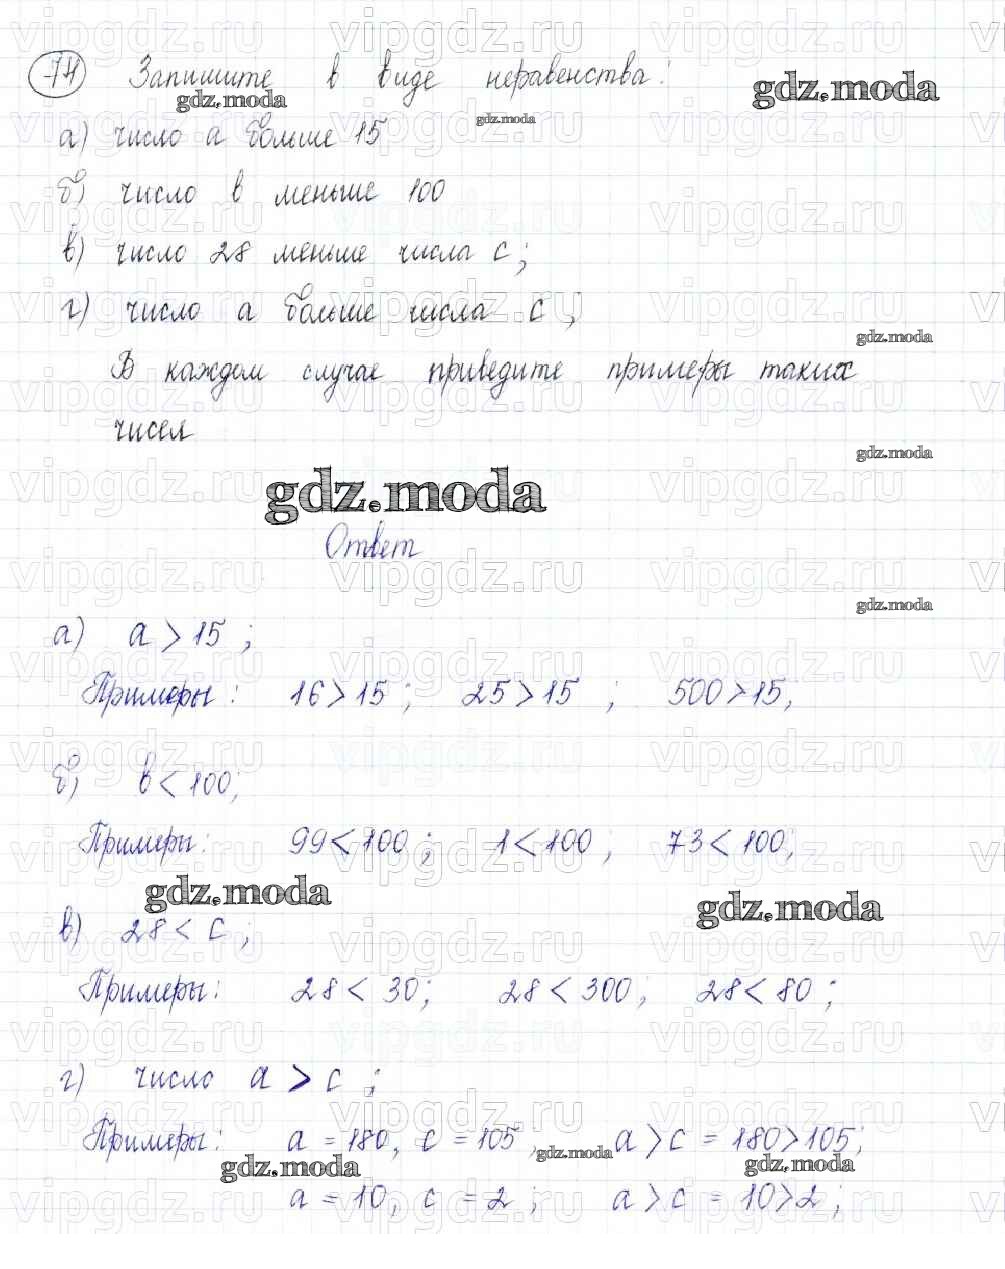 74 Запишите в виде неравенства:
gdz.moda
gdz.moda
а) число а больше 15
gdz.moda
б) число в меньше 100
в) число 28 меньше числа с;
г) число а больше числа с;
gdz.moda
В каждом случае приведите примеры таких
чисел
gdz.moda
gdz.moda
Ответ
vipgdz.ru vipgdz.ru vipgdz.ru
gdz.moda
а) а > 15 ;
Примеры: 16 > 15 ; 25 > 15 ; 500 > 15;
б) в < 100;
Примеры: 99 < 100 ; 1 < 100 ; 73 < 100;
gdz.moda
gdz.moda
в) 28 < с ;
Примеры: 28 < 30; 28 < 300; 28 < 80 ;
г) число а > с ;
Примеры: а = 180, с = 105, а > с = 180 > 105;
gdz.moda gdz.moda gdz.moda
а = 10, с = 2 ; а > с = 10 > 2 ;